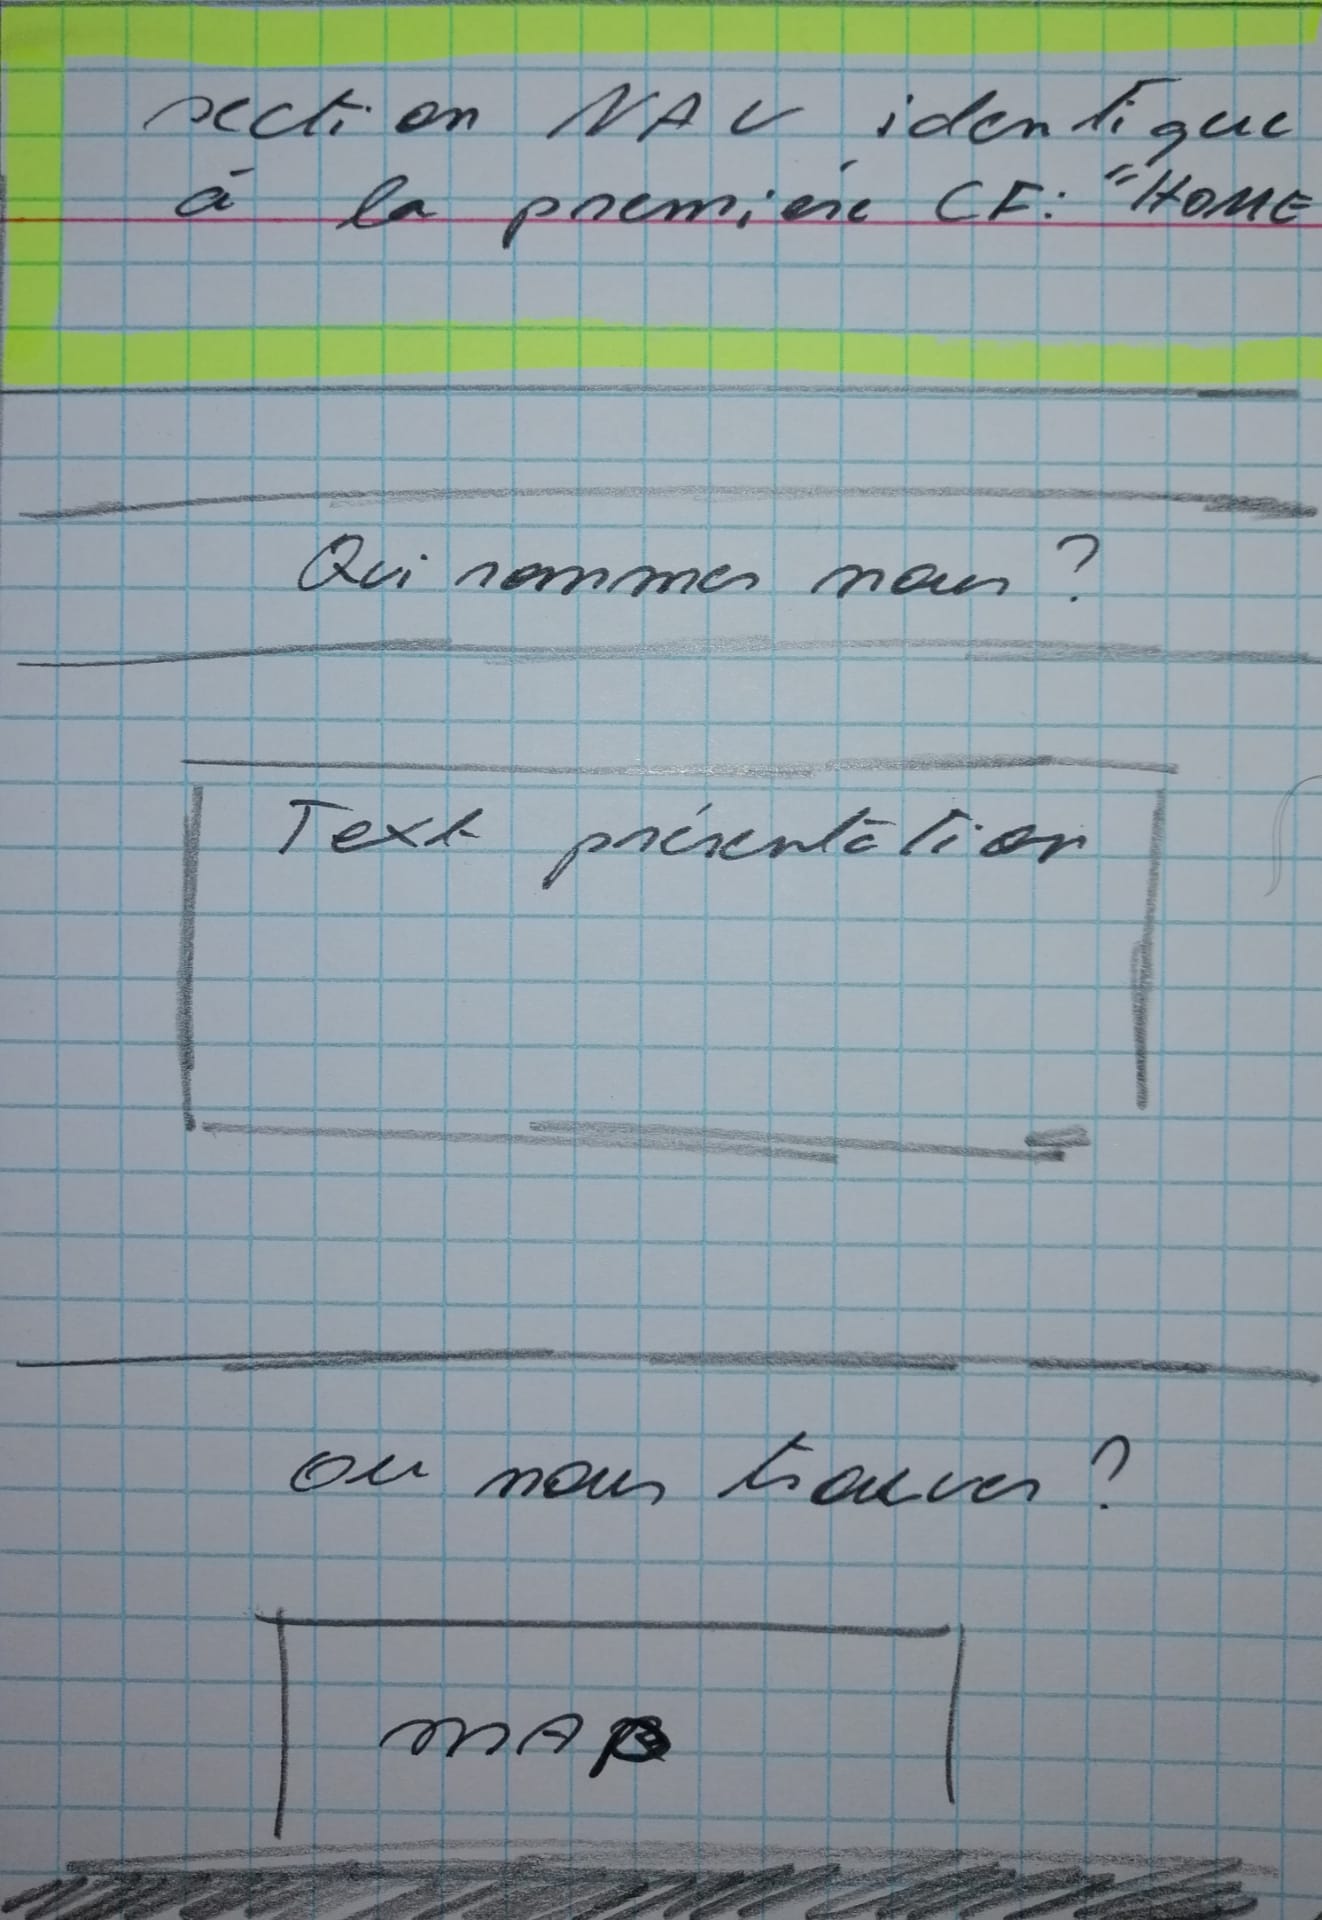 section NAV identique
à la première CF: "HOME
Qui sommes nous ?
Text présentation
ou nous trouver ?
MAP